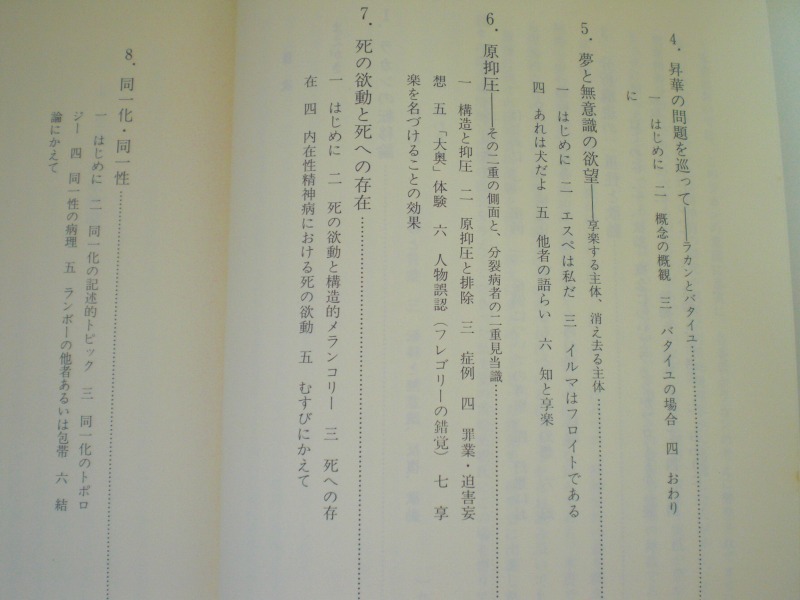 4. 昇華の問題を巡って——ラカンとバタイユ
一 はじめに 二 概念の概観 三 バタイユの場合 四 おわり
に
5. 夢と無意識の欲望——享楽する主体、消え去る主体
一 はじめに 二 エスペは私だ 三 イルマはフロイトである
四 あれは犬だよ 五 他者の語らい 六 知と享楽
6. 原抑圧——その二重の側面と、分裂病者の二重見当識
一 構造と抑圧 二 原抑圧と排除 三 症例 四 罪業・迫害妄
想 五 「大奥」体験 六 人物誤認(フレゴリーの錯覚) 七 享
楽を名づけることの効果
7. 死の欲動と死への存在
一 はじめに 二 死の欲動と構造的メランコリー 三 死への存
在 四 内在性精神病における死の欲動 五 むすびにかえて
8. 同一化・同一性
一 はじめに 二 同一化の記述的トピック 三 同一化のトポロ
ジー 四 同一性の病理 五 ランボーの他者あるいは包帯 六 結
論にかえて